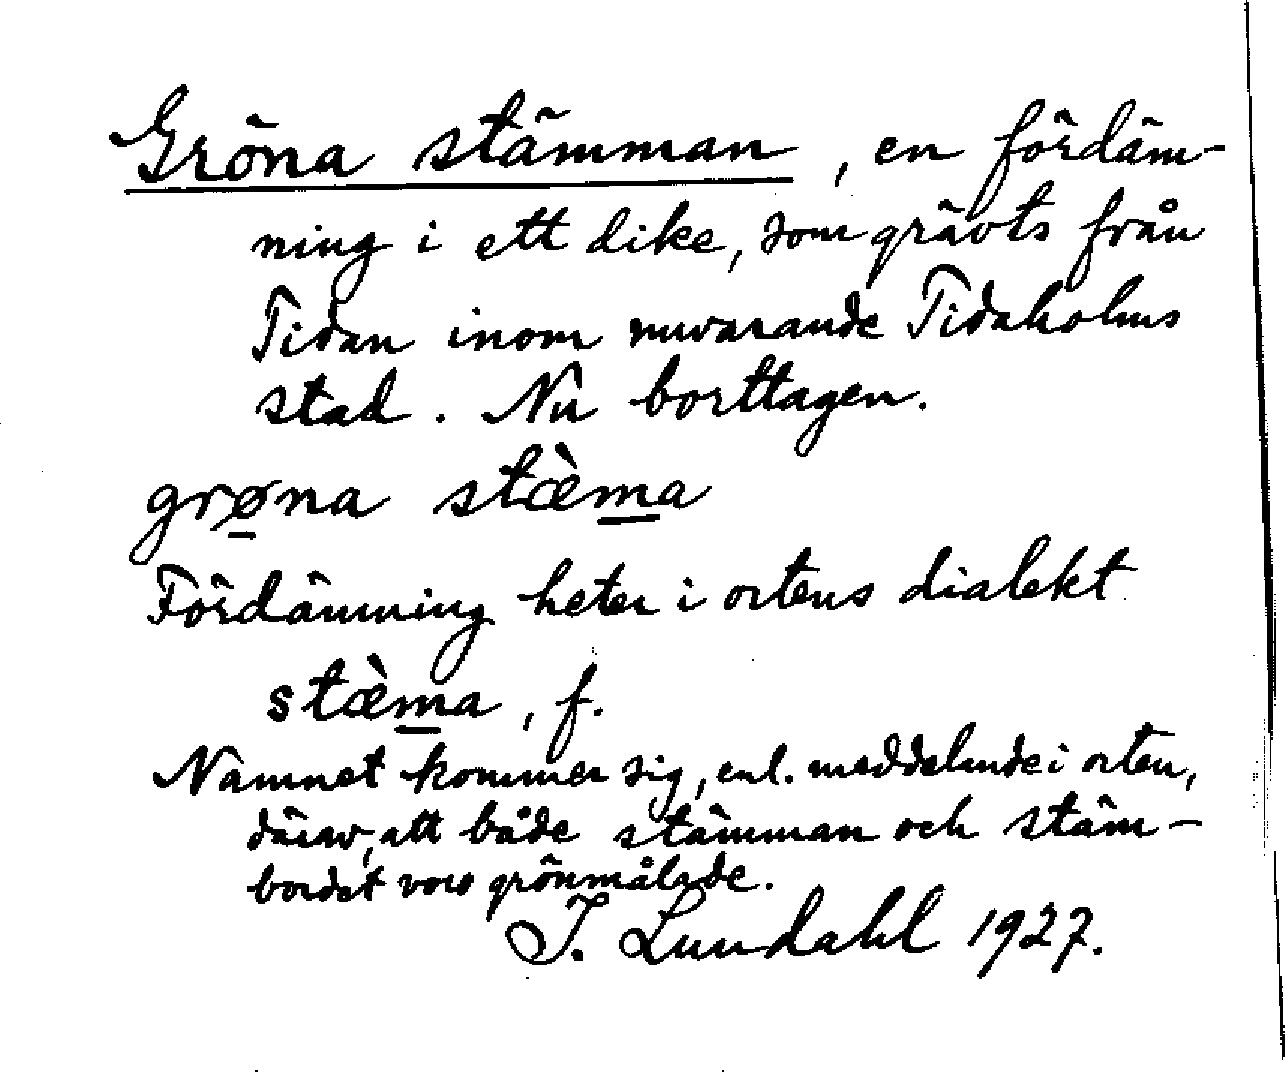 Gröna stämman, en fördäm-
ning i ett dike, som grävts från
Tidan inom nuvarande Tidaholms
stad. Nu borttagen.
grøna stæ̀ma
Fördämning heter i ortens dialekt
stæ̀ma, f.
Namnet kommer sig, enl. meddelande i orten,
därav, att både stämman och stäm-
bordet voro grönmålade.
I. Lundahl 1927.